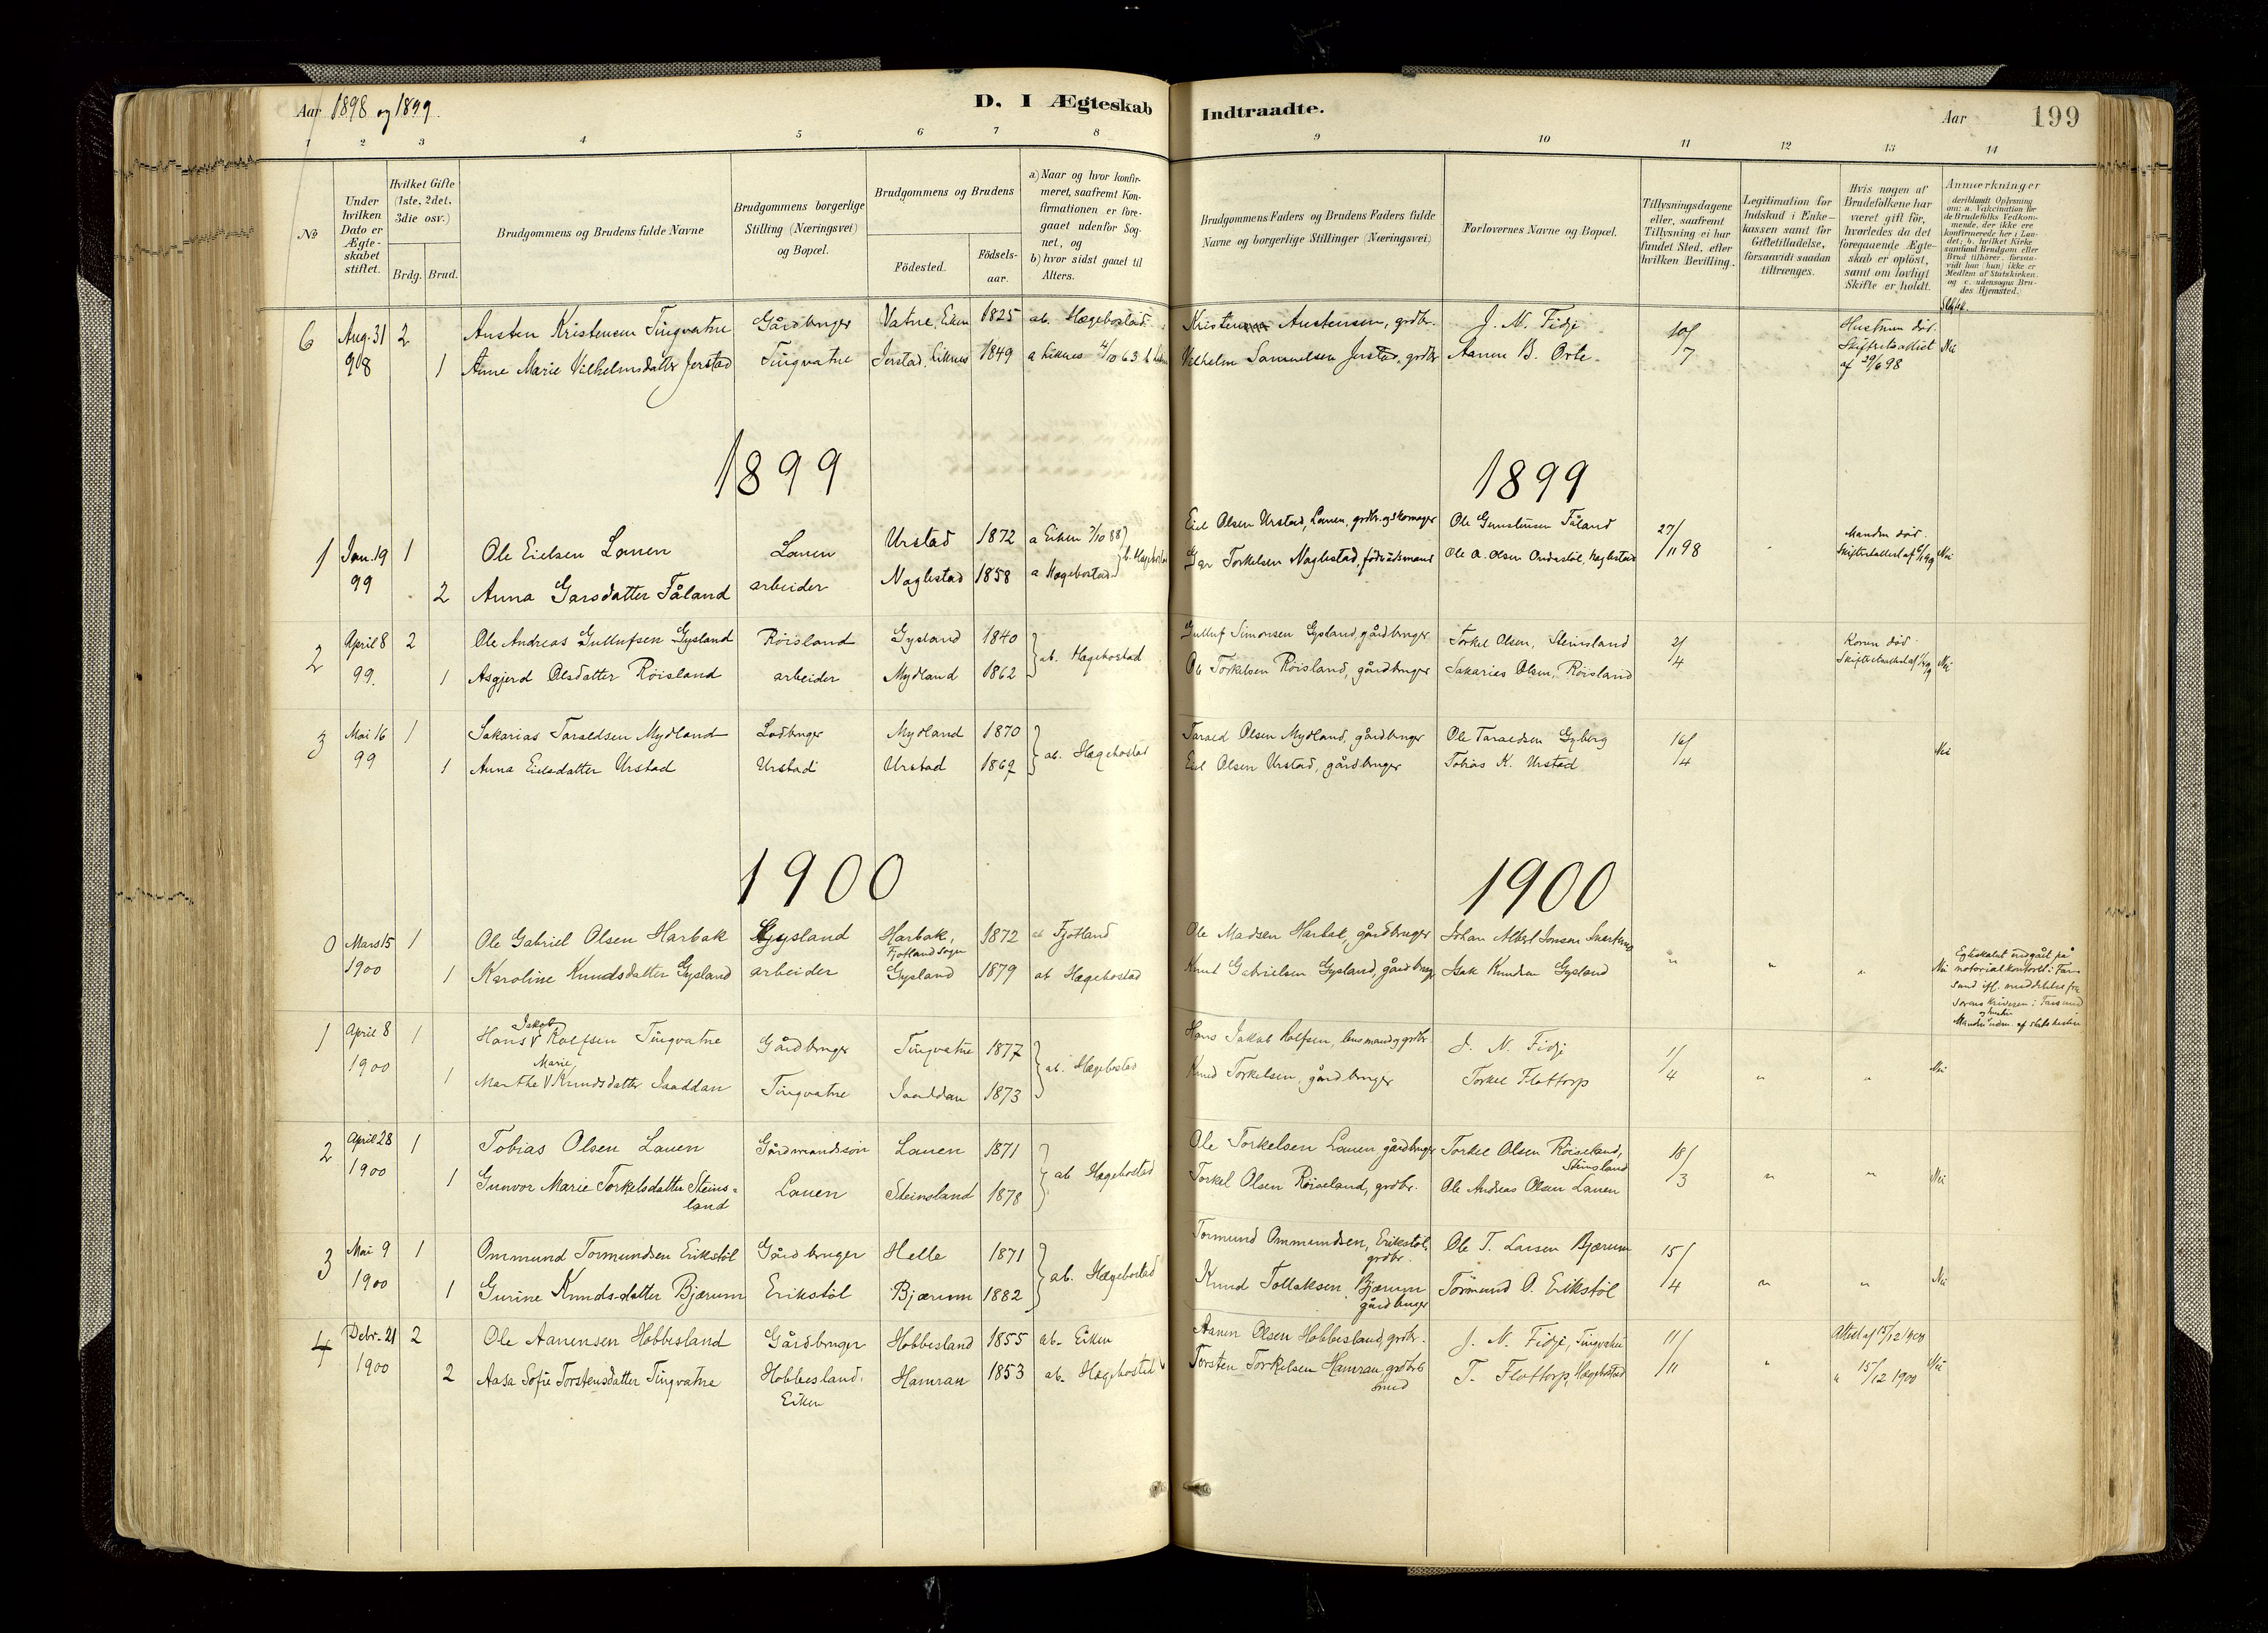 Aar 1898 og 1899.
D. I Ægteskab Indtraadte.
Aar
199
1 2 3 4 5 6 7 8 9 10 11 12 13 14
No
Under hvilken Dato er Ægteskabet stiftet.
Hvilket Gifte (1ste, 2det, 3die osv.)
Brdg. Brud.
Brudgommens og Brudens fulde Navne
Brudgommens borgerlige Stilling (Næringsvei) og Bopæl.
Brudgommens og Brudens
Födested.
Födsels-aar.
a) Naar og hvor konfirmeret, saafremt Konfirmationen er foregaaet udenfor Sognet, og
b) hvor sidst gaaet til Alters.
Brudgommens Faders og Brudens Faders fulde Navne og borgerlige Stillinger (Næringsvei)
Forlovernes Navne og Bopæl.
Tillysningsdagene eller, saafremt Tillysning ei har fundet Sted, efter hvilken Bevilling.
Legitimation for Indskud i Enkekassen samt for Giftetilladelse, forsaavidt saadan tiltrænges.
Hvis nogen af Brudefolkene har været gift för, hvorledes da det foregaaende Ægteskab er oplöst, samt om lovligt Skifte er holdt.
Anmærkninger (deriblandt Oplysning om: a. Vakcination for de Brudefolks Vedkommende, der ikke ere konfirmerede her i Landet; b. hvilket Kirkesamfund Brudgom eller Brud tilhörer, forsaavidt han (hun) ikke er Medlem af Statskirken, og c. udensogns Brudes Hjemsted.)
6 Aug. 31 2 Austen Kristensen Tingvatne Gårdbruger Vatne, Eiken 1825 ab. Hægebostad Kristen Austensen, grdbr. J. N. Fidje 10/7 Hustruen död.
98 1 Anne Marie Vilhelmsdatter Jerstad Tingvatne Jerstad, Liknes 1849 a Liknes 4/10 63 Vilhelm Samuelsen Jerstad, grdbr Aanen B. Orte Skifteattest Nei
af 29/6 98
1899 1899
1 Jan. 19 1 Ole Eielsen Lauen Lauen Urstad 1872 a Eiken 7/10 88 b. Hægebostad Eiel Olsen Urstad, Lauen, grdbr. og skomager Ole Gunstensen Tåland 27/11 98 Manden död.
99 2 Anna Garsdatter Tåland arbeider Naglestad 1858 a Hægebostad Gar Torkelsen Naglestad, föderådsmand Ole A. Olsen Naglestad Skifteattest af Nei
2 April 8 2 Ole Andreas Gullufsen Gysland Röisland Gysland 1840 ab. Hægebostad Gulluf Simonsen Gysland, gårdbruger Torkel Olsen, Steinsland 2/4 Konen död
99. 1 Asgjerd Olsdatter Röisland arbeider Mydland 1862 Ole Torkelsen Röisland, gårdbruger Sakarias Olsen, Röisland Skifteattest af Nei
3 Mai 16 1 Sakarias Taraldsen Mydland Ladbruger Mydland 1870 ab. Hægebostad Tarald Olsen Mydland, gårdbruger Ole Taraldsen Gyberg 16/4 Nei
99 1 Anna Eielsdatter Urstad Urstad Urstad 1867 Eiel Olsen Urstad, gårdbruger Tobias K. Urstad
1900 1900
0 Mars 15 1 Ole Gabriel Olsen Harbak Gysland Harbak, Fjotland sogn 1872 ab Fjotland Ole Madsen Harbak, gårdbruger Johan Albert Jonsen
1900 1 Karoline Knudsdatter Gysland arbeider Gysland 1879 ab. Hægebostad Knud Gabrielsen Gysland, gårdbruger Isak Knudsen Gysland " " " Nei
Egteskabet indgået på notorialkontoret i Farsund ifl. meddelelse fra Sorenskriveren i Farsund
Manden og hustru udm. af statskirken
1 April 8 1 Hans Jakob Rolfsen Tingvatne Gårdbruger Tingvatne 1877 ab. Hægebostad Hans Jakob Rolfsen, lensmand og grdbr. J. N. Fidje 1/4 " " Nei
1900 1 Marthe Marie Knudsdatter Isaddan Tingvatne Isaddan 1873 Knud Torkelsen, gårdbruger Torkel Flottorp
2 April 28 1 Tobias Olsen Lauen Gårdmandssön Lauen 1871 ab Hægebostad Ole Torkelsen Lauen gårdbruger Torkel Olsen Röiseland, Steinsland 18/3 " " Nei
1900 1 Gunvor Marie Torkelsdatter Steinsland Lauen Steinsland 1878 Torkel Olsen Röiseland, grdbr. Ole Andreas Olsen Lauen
3 Mai 9 1 Ommund Tormundsen Erikstöl Gårdbruger Helle 1871 ab. Hægebostad Tormund Ommundsen, Erikstöl, grdbr. Ole T. Larsen Bjærum 15/4 " " Nei
1900 1 Gurine Knudsdatter Bjærum Erikstöl Bjærum 1882 Knud Tollaksen Bjærum gårdbruger Tormund O. Erikstöl
4 Debr. 21 2 Ole Aanensen Hobbesland Gårdbruger Hobbesland 1855 ab. Eiken Aanen Olsen Hobbesland, grdbr. J. N. Fidje, Tingvatne 11/11 " Attest af 15/12 1900
1900 2 Aasa Sofie Torstensdatter Tingvatne Hobbesland, Eiken Hamran 1853 ab. Hægebostad Torsten Torkelsen Hamran, grdbr & smed T. Flottorp, Hægebostad " 15/12 1900 Nei